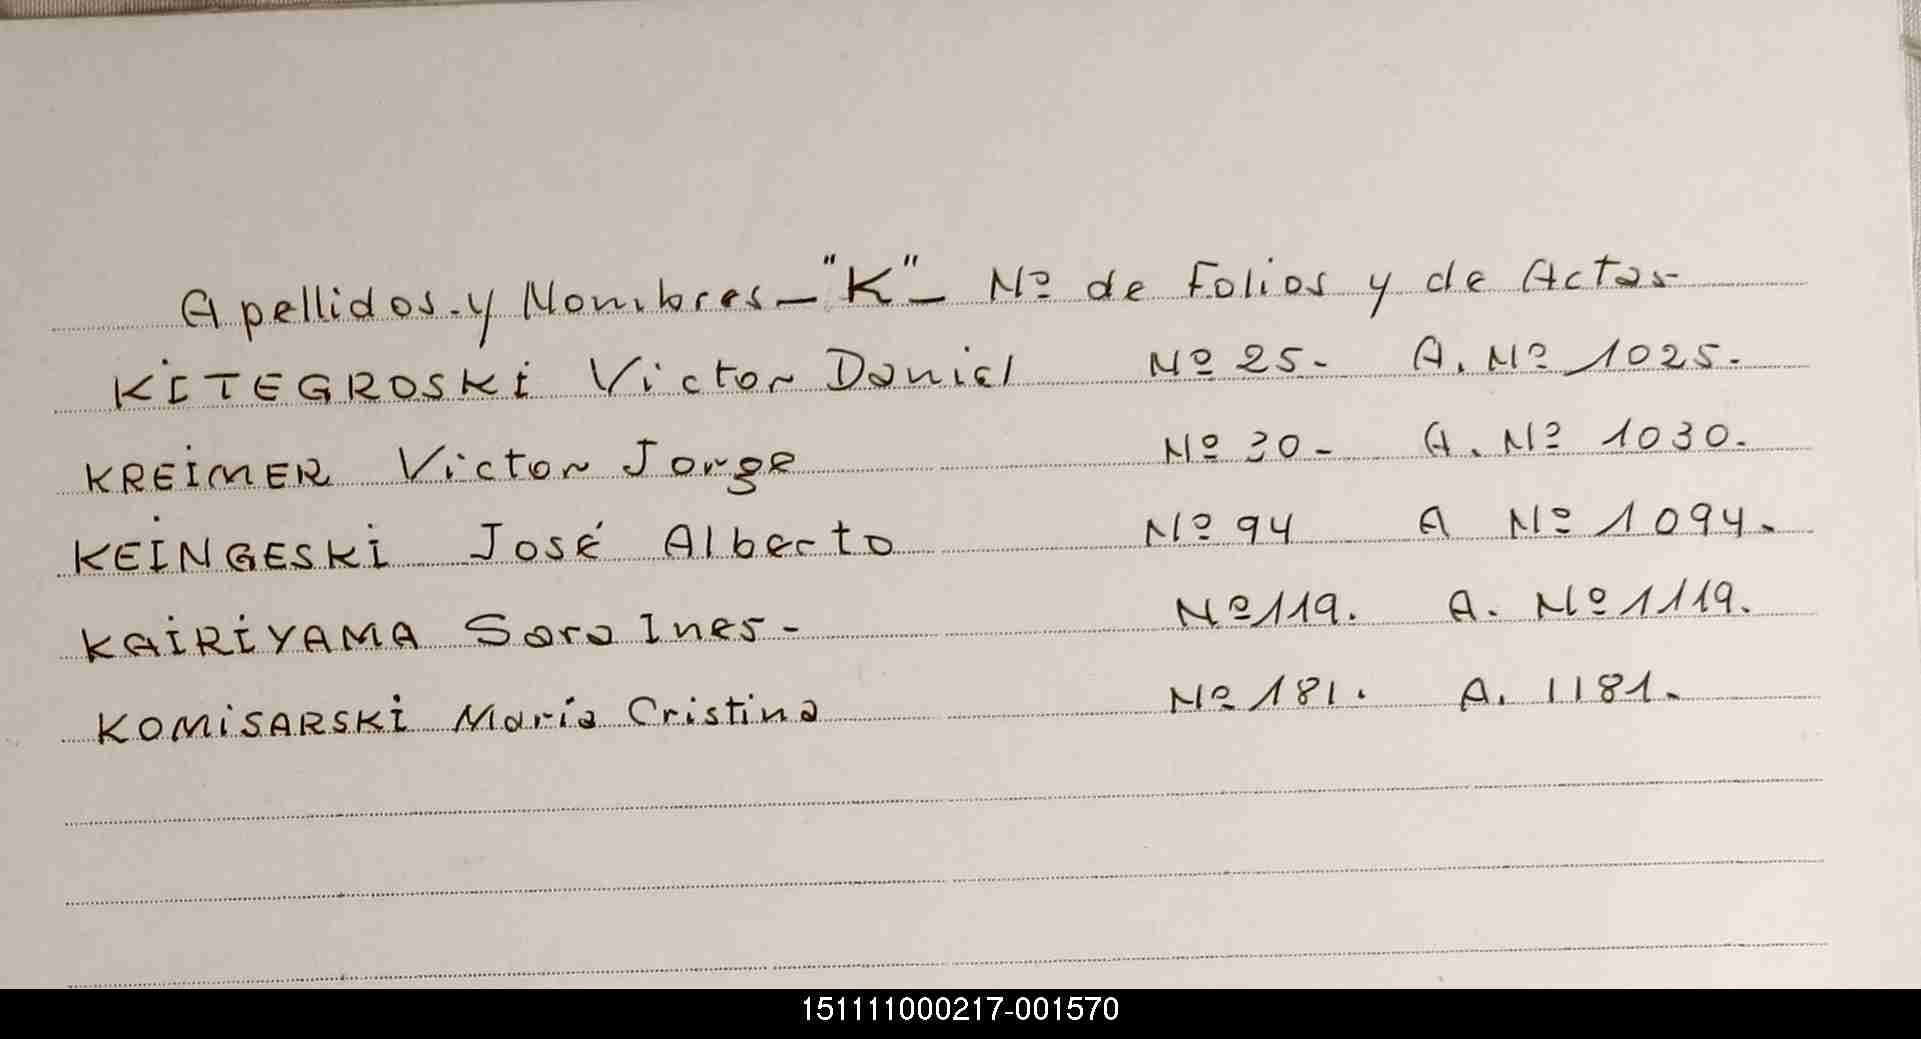 Apellidos y Nombres - "K" - Nº de Folios y de Actas
KITEGROSKI Victor Daniel Nº 25- A. Nº 1025-
KREIMER Victor Jorge Nº 30- A. Nº 1030-
KEINGESKI José Alberto Nº 94 A Nº 1094-
KAIRIYAMA Sara Ines- Nº 119. A. Nº 1119.
KOMISARSKI María Cristina Nº 181. A. 1181.
151111000217-001570